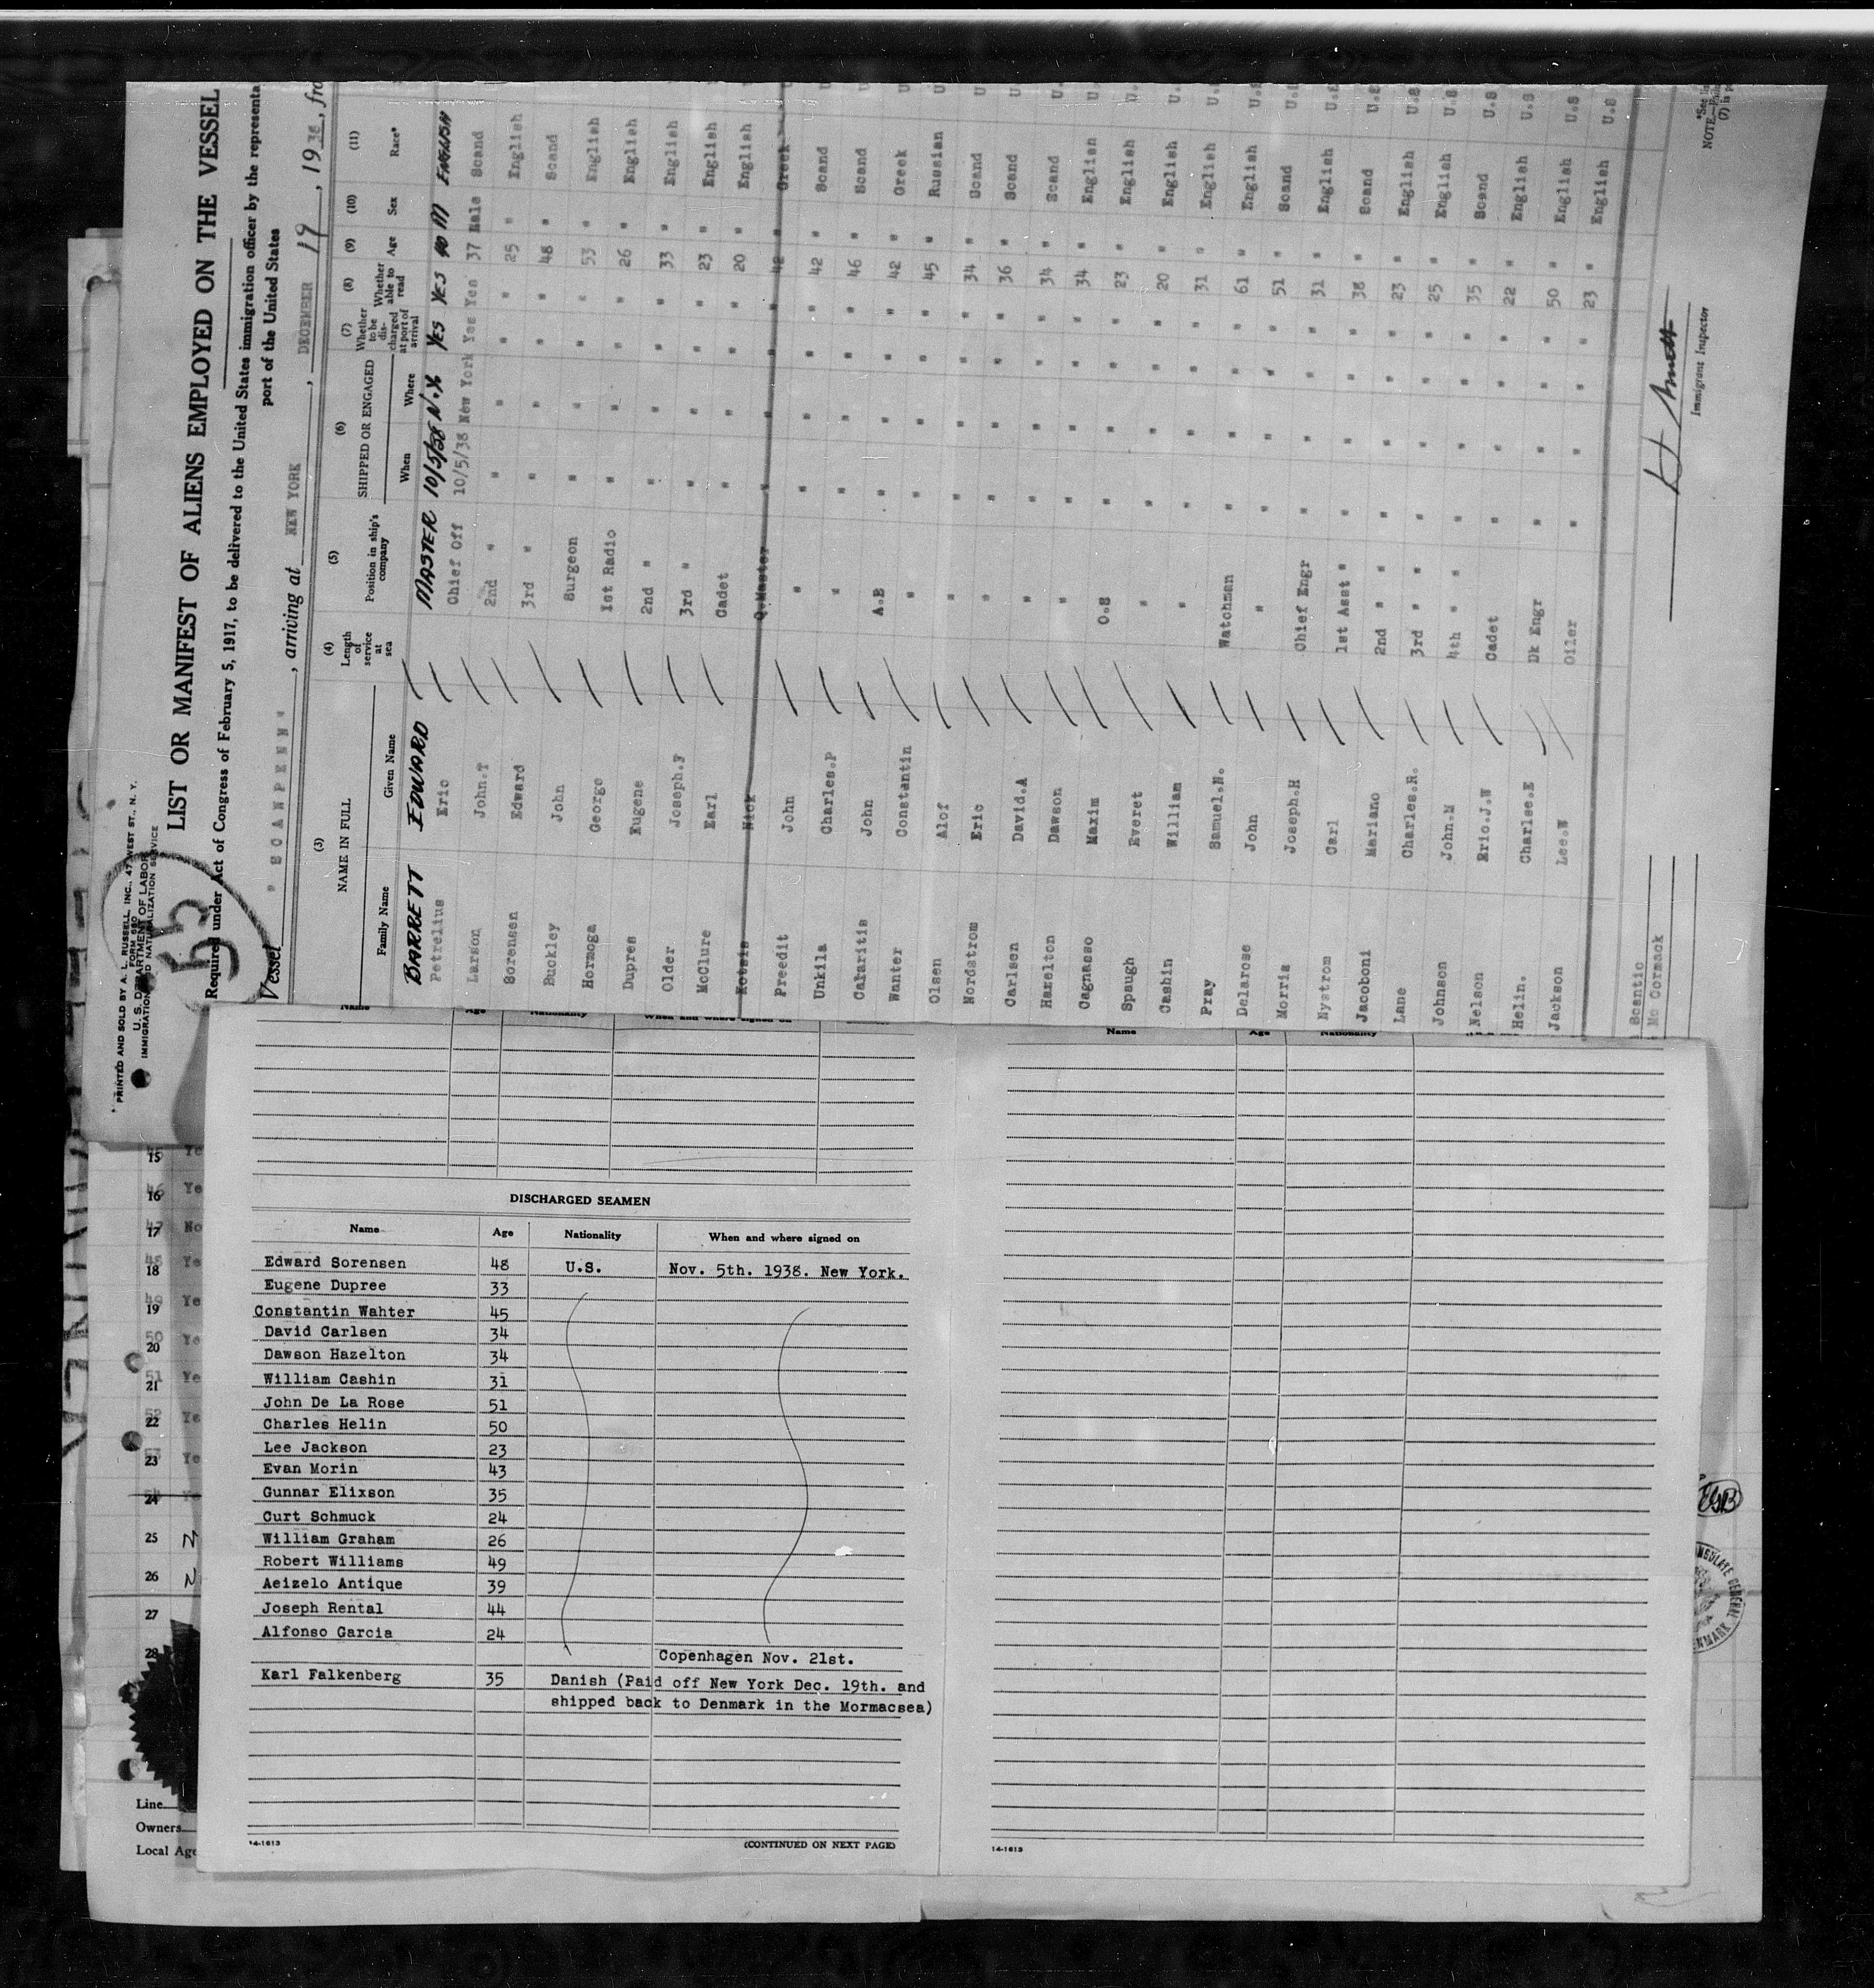 PRINTED AND SOLD BY A. L. RUSSELL, INC., 47 WEST ST., N. Y.
FORM 680
U. S. DEPARTMENT OF LABOR
IMMIGRATION AND NATURALIZATION SERVICE
LIST OR MANIFEST OF ALIENS EMPLOYED ON THE VESSEL
Required under Act of Congress of February 5, 1917, to be delivered to the United States immigration officer by the representa
port of the United States
Vessel " SCANPENN " , arriving at NEW YORK , DECEMBER 19 , 1938, fro
(3) (4) (5) (6) (7) (8) (9) (10) (11)
NAME IN FULL Length of service at sea Position in ship's company SHIPPED OR ENGAGED Whether to be discharged at port of arrival Whether able to read Age Sex Race*
Family Name Given Name When Where
BARRETT EDWARD MASTER 10/5/38 N.Y. YES YES 40 M ENGLISH
Petrelius Eric Chief Off 10/5/38 New York Yes Yes 37 Male Scand U
Larson John.T 2nd " " " " " 25 " English
Sorensen Edward 3rd " " " " " 48 " Scand
Buckley John Surgeon " " " " 53 " English
Hormoga George 1st Radio " " " " 26 " English
Dupres Eugene 2nd " " " " " 33 " English
Older Joseph.F 3rd " " " " " 23 " English
McClure Earl Cadet " " " " 20 " English
Kotsis Nick Q.Master " " " " 42 " Greek U
Preedit John " " " " " 42 " Scand U
Unkila Charles.P " " " " " 46 " Scand U
Cataritis John A.B " " " " 42 " Greek U
Wanter Constantin " " " " " 45 " Russian U
Olsen Alof " " " " " 34 " Scand U
Nordstrom Eric " " " " " 36 " Scand U
Carlsen David.A " " " " " 34 " Scand U.
Hazelton Dawson " " " " " 34 " English U.
Cagnasso Maxim O.S " " " " 23 " English U.
Spaugh Everet " " " " " 20 " English U.
Cashin William " " " " " 31 " English U.
Pray Samuel.N. Watchman " " " " 61 " English U.S
Delarose John " " " " " 51 " Scand U.S
Morris Joseph.H Chief Engr " " " " 31 " English U.S
Nystrom Carl 1st Asst " " " " " 38 " Scand U.S
Jacoboni Mariano 2nd " " " " " " 23 " English U.S
Lane Charles.R. 3rd " " " " " " 25 " English U.S
Johnson John.M 4th " " " " " " 35 " Scand U.S
Nelson Eric.J.W Cadet " " " " 22 " English U.S
Helin. Charles.E Dk Engr " " " " 50 " English U.S
Jackson Lee.W Oiler " " " " 23 " English U.S
Scantic
Mc Cormack
Immigrant Inspector
*See
NOTE
(7) is
Name Age Nationality When and where signed on
Name Age Nationality
DISCHARGED SEAMEN
Name Age Nationality When and where signed on
Edward Sorensen 48 U.S. Nov. 5th. 1938. New York.
Eugene Dupree 33
Constantin Wahter 45
David Carlsen 34
Dawson Hazelton 34
William Cashin 31
John De La Rose 51
Charles Helin 50
Lee Jackson 23
Evan Morin 43
Gunnar Elixson 35
Curt Schmuck 24
William Graham 26
Robert Williams 49
Aeizelo Antique 39
Joseph Rental 44
Alfonso Garcia 24
Copenhagen Nov. 21st.
Karl Falkenberg 35 Danish (Paid off New York Dec. 19th. and
shipped back to Denmark in the Mormacsea)
14-1613 (CONTINUED ON NEXT PAGE)
14-1613
15 Ye
16 Ye
17 No
18 Ye
19 Ye
20 Ye
21 Ye
22 Ye
23 Ye
24 Ye
25 N
26 N
27
28
Line
Owners
Local Age